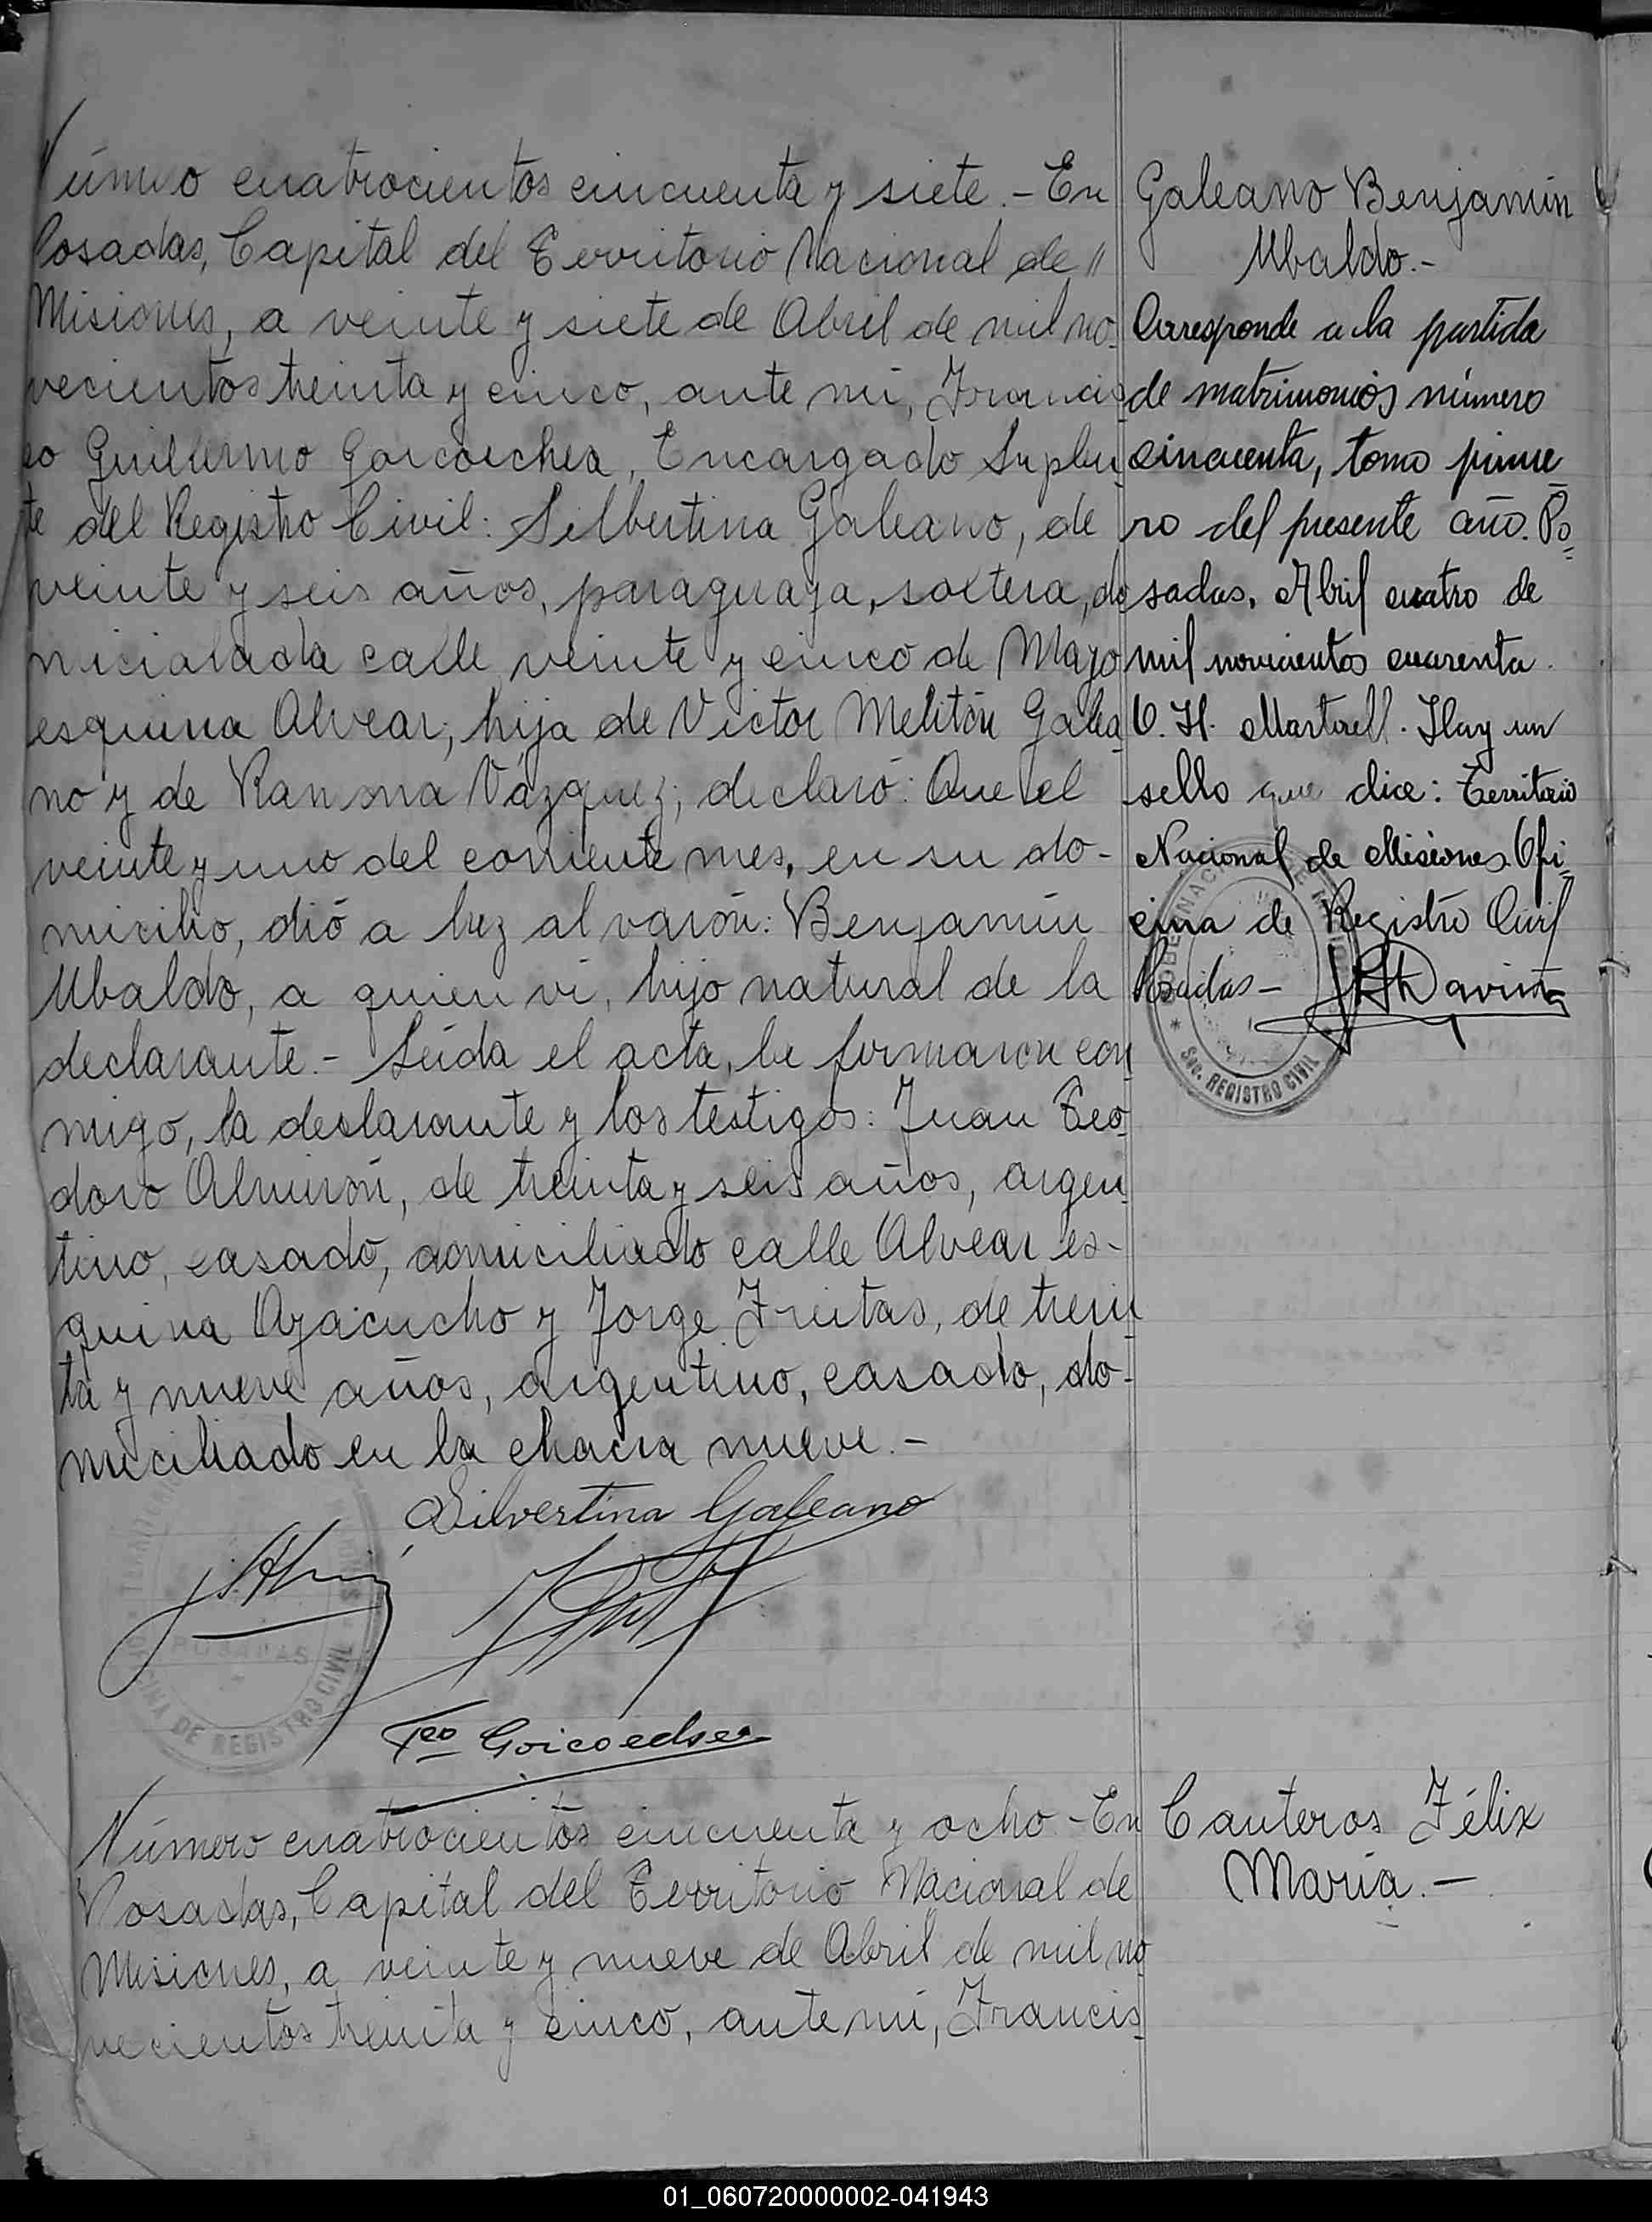 Número cuatrocientos cincuenta y siete.- En
Posadas, Capital del Territorio Nacional de "
Misiones, a veinte y siete de Abril de mil no-
vecientos treinta y cinco, ante mi, Francis-
co Guillermo Goicoechea, Encargado Suplen-
te del Registro Civil: Silbertina Galeano, de
veinte y seis años, paraguaya, soltera, do
miciliada calle veinte y cinco de Mayo
esquina Alvear, hija de Victor Melitón Galea-
no y de Ramona Vázquez; declaró: Que el
veinte y uno del corriente mes, en su do-
micilio, dió a luz al varón: Benjamín
Ubaldo, a quien vi, hijo natural de la
declarante.- Leída el acta, la firmaron con
migo, la declarante y los testigos: Juan Teo-
doro Almirón, de treinta y seis años, argen-
tino, casado, domiciliado calle Alvear es-
quina Ayacucho y Jorge Freitas, de trein-
ta y nueve años, argentino, casado, do-
miciliado en la chacra nueve.-
Silvertina Galeano
POSADAS
OFICINA DE REGISTRO CIVIL
Fco Goicoechea
Galeano Benjamín
Ubaldo.-
Corresponde a la partida
de matrimonios número
cincuenta, tomo prime-
ro del presente año. Po=
sadas, Abril cuatro de
mil novecientos cuarenta.
V. H. Martorell. Hay un
sello que dice: Territorio
Nacional de Misiones. Ofi=
cina de Registro Civil
Posadas-
SEC. REGISTRO CIVIL
Número cuatrocientos cincuenta y ocho.- En
Posadas, Capital del Territorio Nacional de
Misiones, a veinte y nueve de Abril de mil no-
vecientos treinta y cinco, ante mi, Francis-
Canteros Félix
María.-
01_060720000002-041943